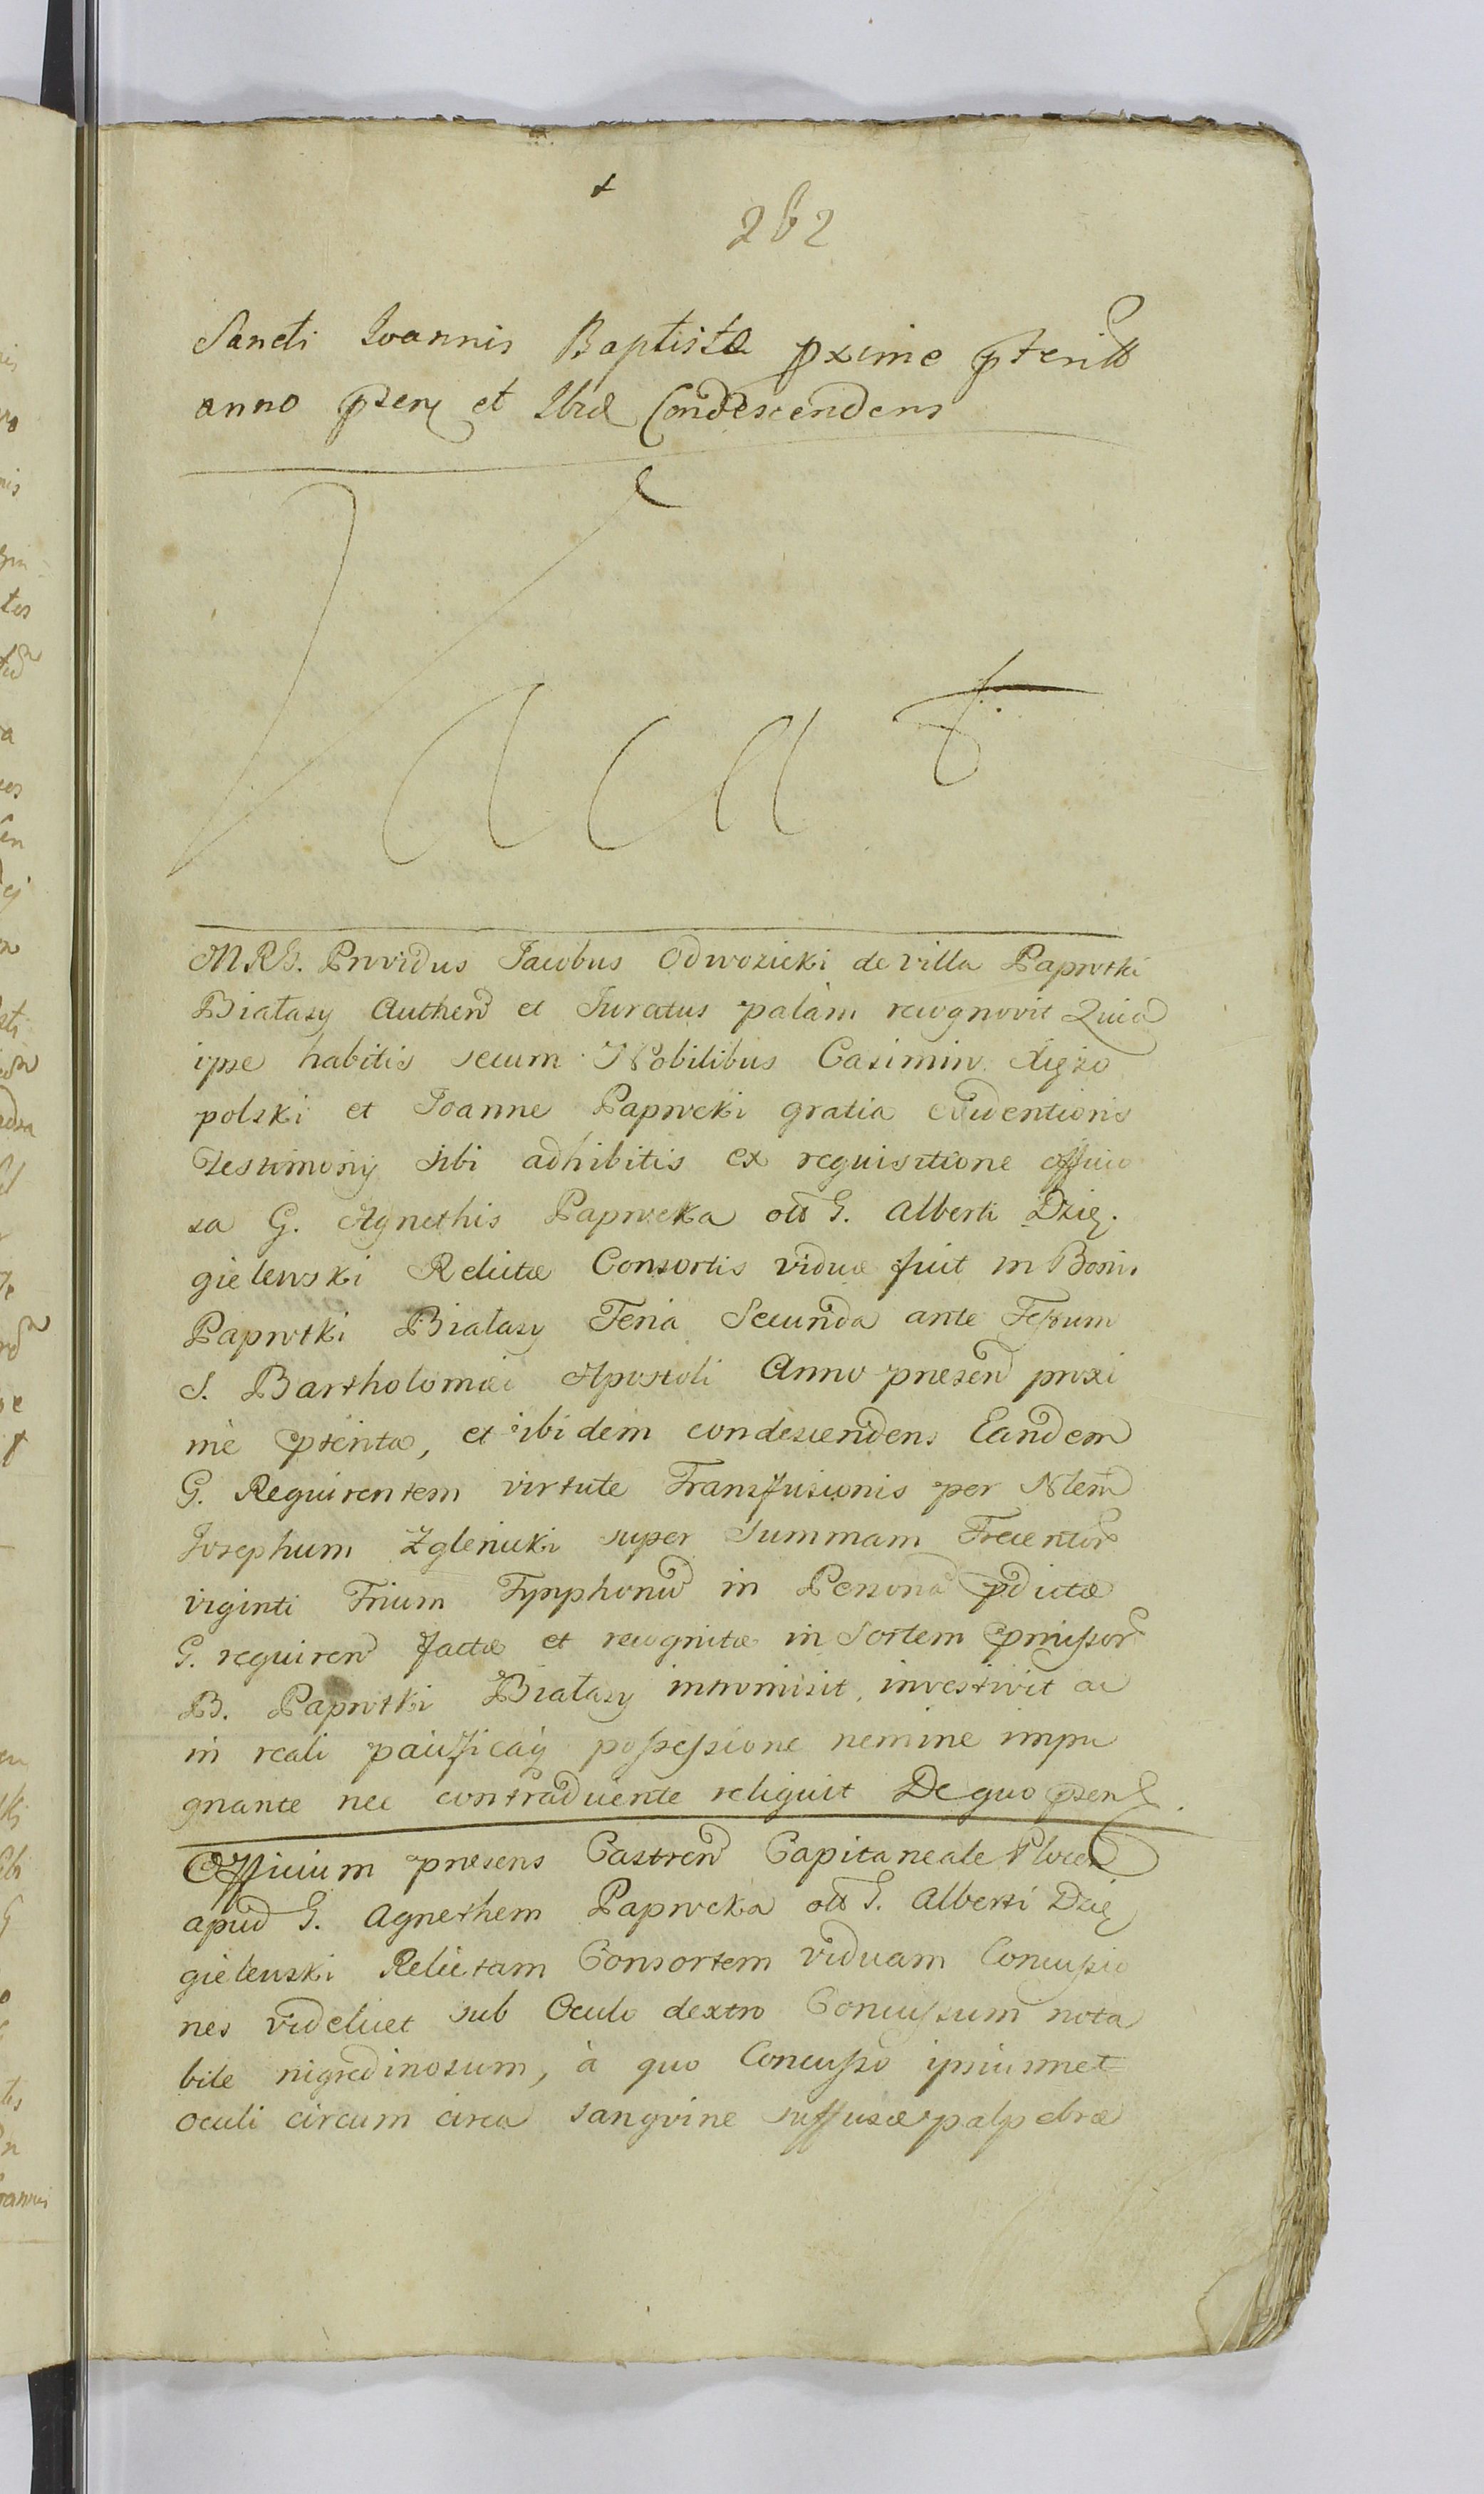 262
Sancti Ioannis Baptistæ pxime pterit
anno psen et Ibid Condescendens
Vacat
MRG. Providus Jacobus Odwozicki de villa Paprotki
Białasy Authen et Juratus palàm recognovit Quia
ipse habitis secum Nobilibus Casimiro
polski et Joanne Paprocki gratia evidentioris
Testimonij sibi adhibitis ex requisitione officio
sa G. Agnethis Paprocka olt G. Alberti Dzię.
gielewski Relictæ Consortis viduæ fuit in Bonis
Paprotki Białasy Feria Secunda ante Festum
S. Bartholomæi Apostoli Anno præsen proxi
mè pterita, et ibidem condescendens Eandem
G. Requirentem virtute Transfusionis per Nlem
Josephum Zglenicki super Summam Trecentor
viginti Trium Tymphonu in Personã pdictæ
G. requiren factæ et recognitæ in Sortem pmissor
B. Paprotki Białasy intromisit, investivit ac
in reali pacificaq possessione nemine impu
gnante nec contradicente reliquit De quo psen
Officium præsens Castren Capitaneale Plocen
apud G. Agnethem Paprocka olt G. Alberti Dzię
gielewski Relictam Consortem viduam Concussio
nes videlicet sub Oculo dextro Concussum nota
bile nigredinosum, à quo Concusso ipsiusmet
oculi circum circa sangvine suffusæ palpebræ